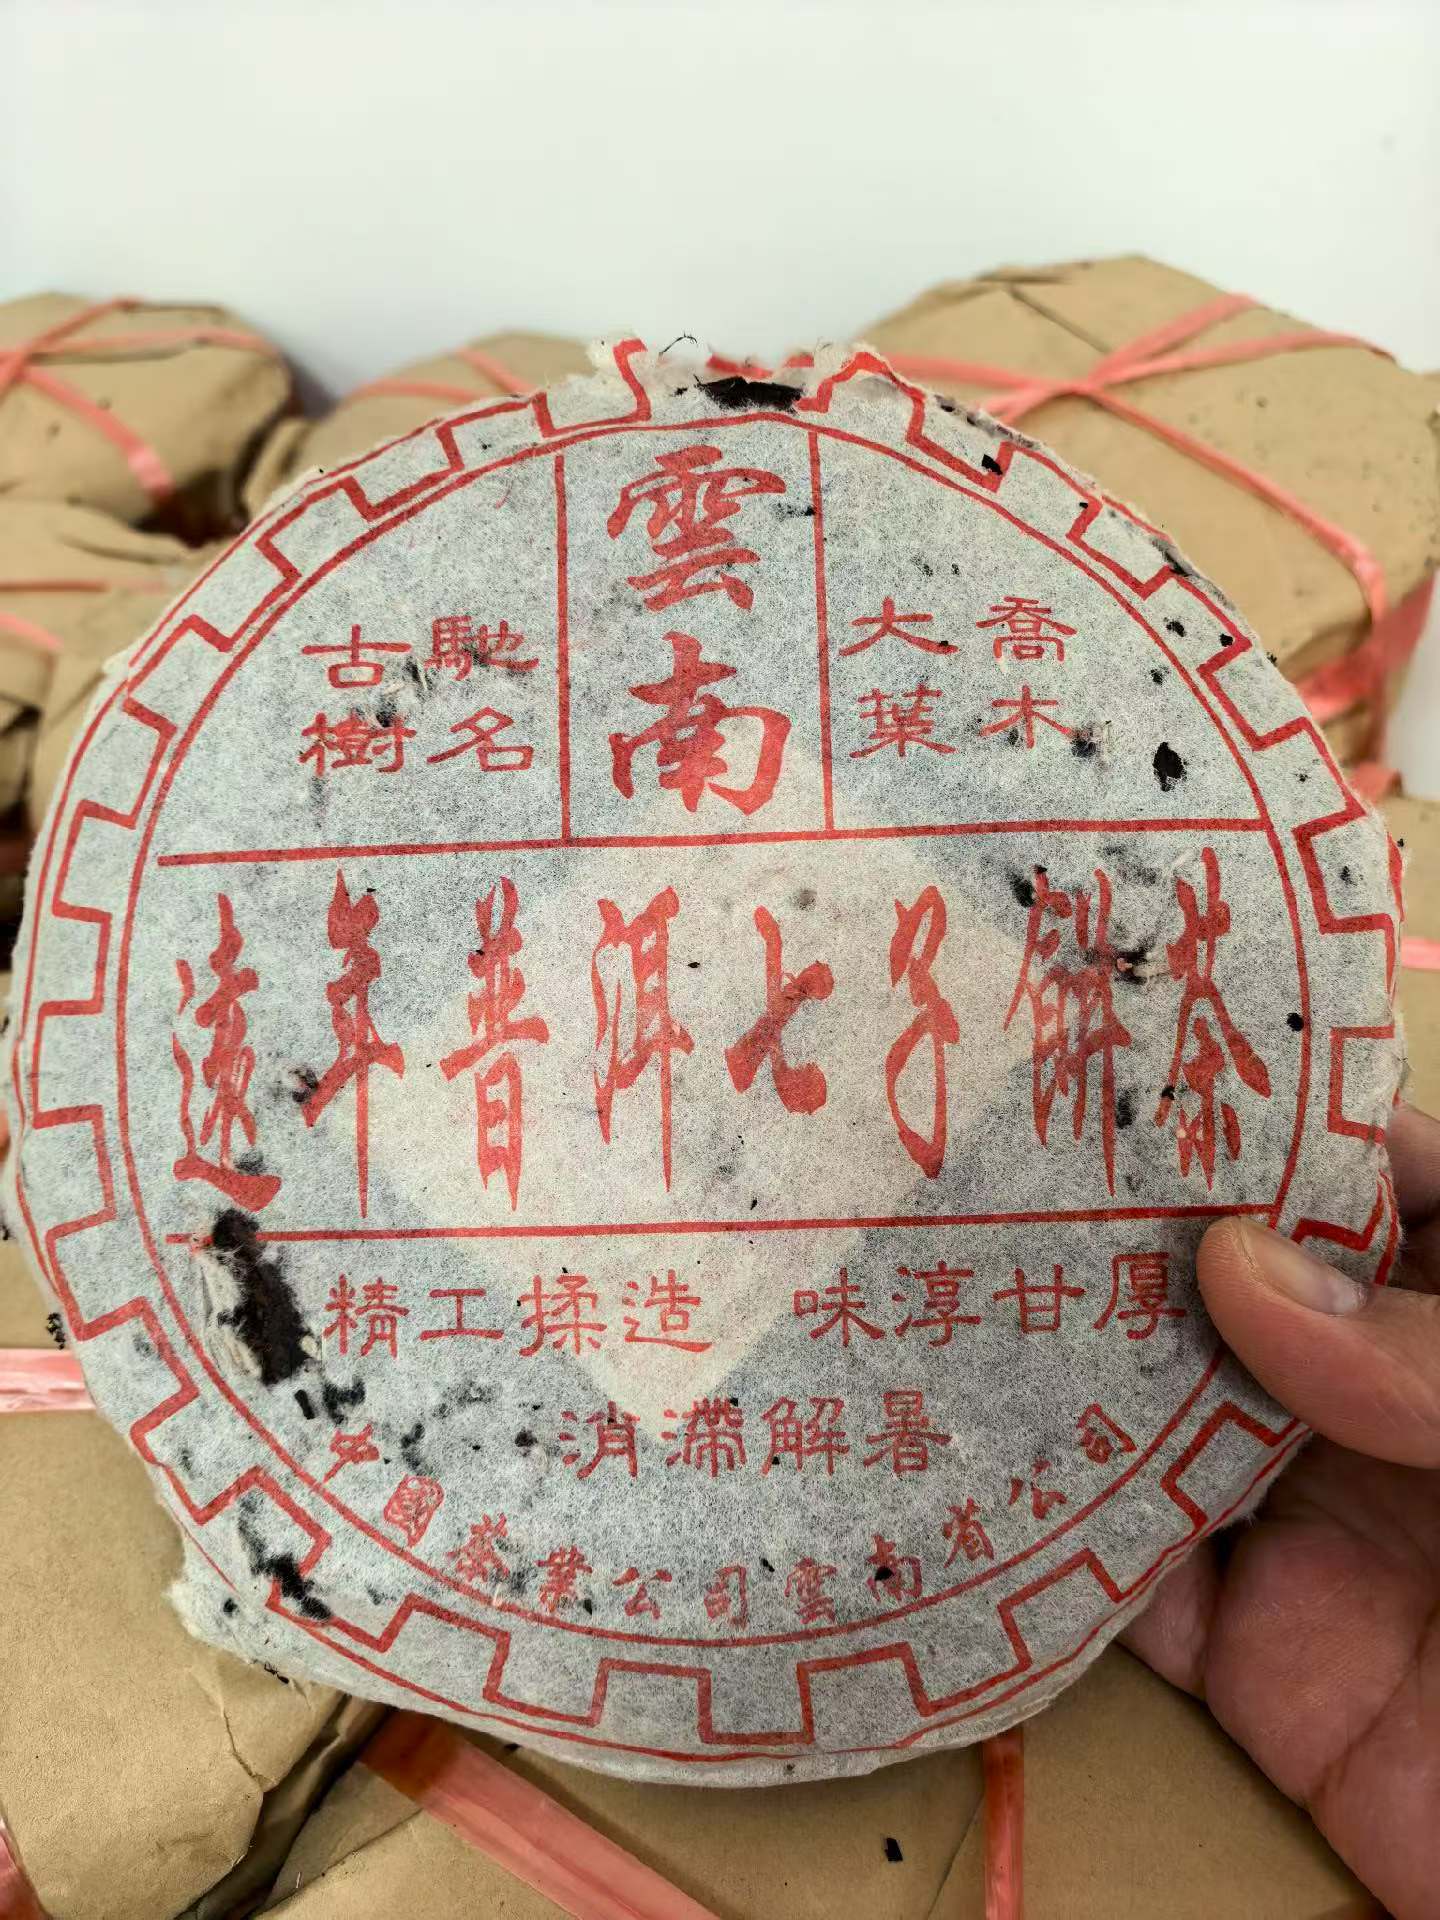 雲南
喬木
大葉
馳名
古樹
遠年普洱七子餅茶
精工揉造 味淳甘厚
消滯解暑
中國茶業公司雲南省公司